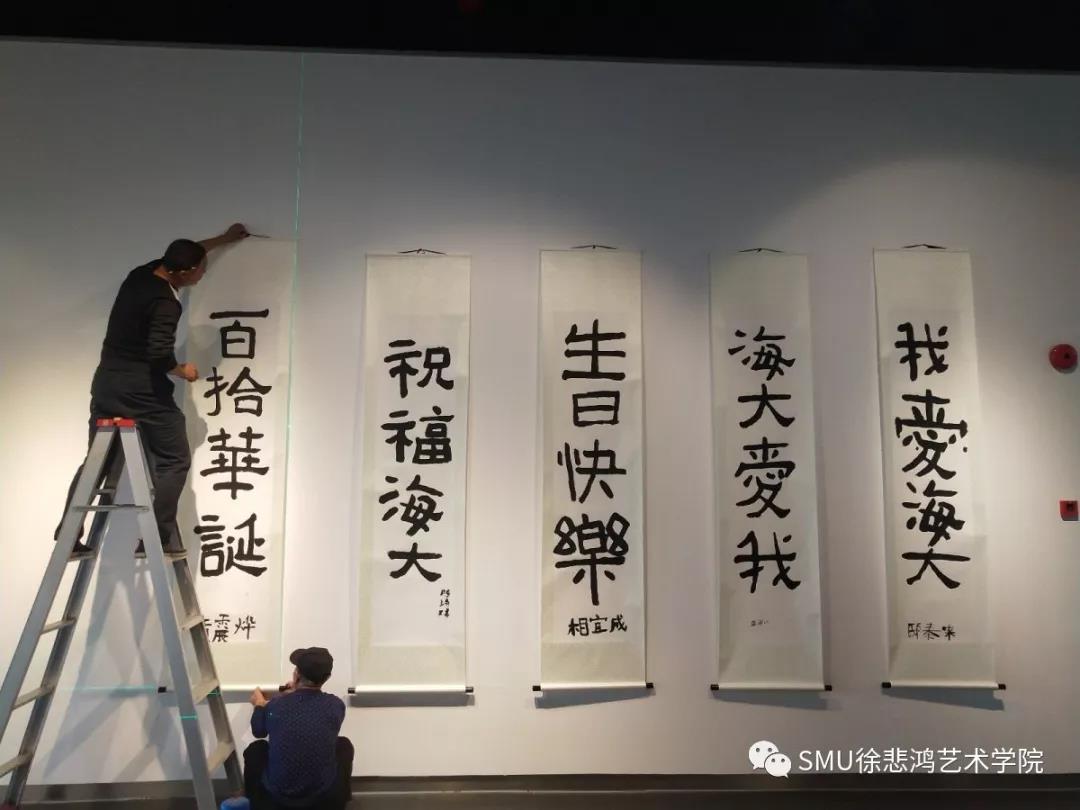 百拾華誕
震烨
祝福海大
生日快樂
相宜成
海大愛我
我愛海大
SMU徐悲鸿艺术学院